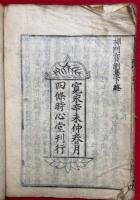 禪門寶訓集下終
寛永辛未仲春月
四條時心堂刊行